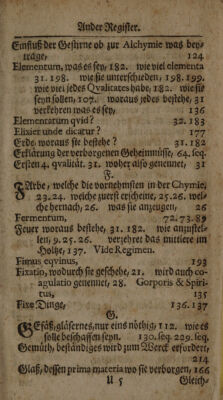 Ander Register.
Einfluß der Gestirne ob zur Alchymie was bey-
trage, 124
Elementum, was es sey, 182. wie viel elementa
31. 198. wie sie unterschieden, 198. 199.
wie viel jedes Qvalitates habe, 182. wie sie
seyn sollen, 107. woraus jedes bestehe, 31
verkehren was es sey, 136
Elementatum qvid? 32. 183
Elixier unde dicatur? 177
Erde, woraus sie bestehe? 31. 182
Erklärung der verborgenen Geheimnüsse, 64. seq.
Ersten 4. qvalität. 31. woher also genennet, 31
F.
FArbe, welche die vornehmsten in der Chymie,
23. 24. welche zuerst erscheine, 25. 26. wel-
che hernach, 26. was sie anzeugen, 26
Fermentum, 72. 73. 89
Feuer woraus bestehe, 31. 182. wie anzustel-
len, 9. 25. 26. verzehret das mittlere im
Holtze, 137. Vide Regimen.
Fimus eqvinus, 193
Fixatio, wodurch sie geschehe, 21. wird auch co-
agulatio genennet, 28. Corporis & Spiri-
tus, 135
Fixe Dinge, 136. 137
G.
GEfäß, gläsernes, nur eins nöthig, 112. wie es
solle beschaffen seyn. 130. seq. 229. seq.
Gemüth, beständiges wird zum Werck erfordert,
214
Glaß, dessen prima materi wo sie verborgen, 166
U 5 Gleich-